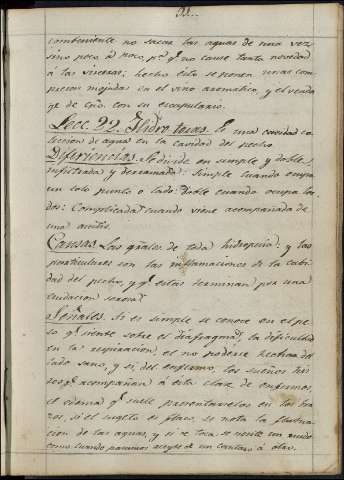 combeniente no sacar las aguas de una vez
sino poco á poco, pª qº no cause tanta novedad
á las visceras; hecho esto se ponen unas com-
presas mojadas en el vino aromatico, y el venda
ge de cpo. con su escapulario.
Lecc. 22. Hidrotorax. Es una cavidad co-
leccion de agua en la cavidad del pecho.
Diferiencias. Se divide en simple y doble,
infiltrada y derramada: Simple cuando ocupa
un solo punto o lado: Doble cuando ocupa los
dos: Complicada cuando viene acompañada de
una acitis.
Causas. Las grales de toda hidropesia: y las
particulares son las inflamaciones de la cabi-
dad del pecho, y qº estas terminan por una
exudacion serosa.
Señales. Si es simple se conoce en el pe-
so qº siente sobre el diafragma, la dificultad
en la respiracion, el no poderse hechar del
lado sano, y si, del enfermo, los sueños
qº acompañan á esta clase de enfermos,
el edema qº suele presentarseles en los bra-
zos, si el sugeto es flaco, se nota la fluctua-
cion de las aguas, y si se toca se siente un ruido
como cuando ponemos de un cantaro á otro.